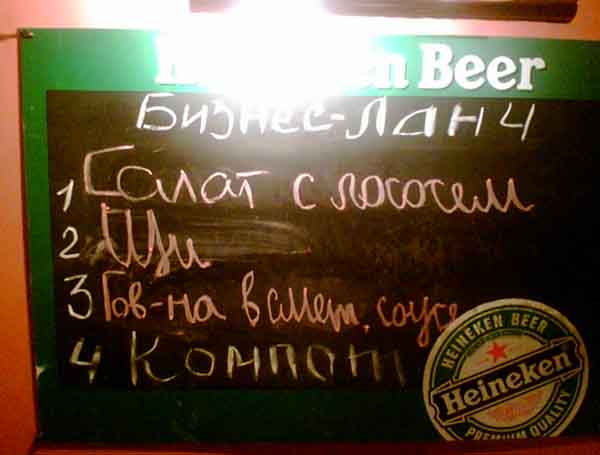 Heineken Beer
Бизнес-Ланч
1 Салат с лососем
2 Щи
3 Гов-на в смет. соусе
4 Компот
HEINEKEN BEER
Heineken
PREMIUM QUALITY